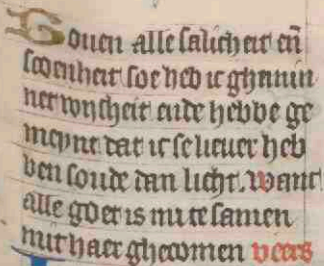 Bouen alle salicheit en̄
scoenheit soe heb ic ghemin
net wijsheit ende hebbe ge
meynt dat ic se lieuer heb
ben soude dan licht. want
alle goet is mi te samen
mit haer ghecomen veers